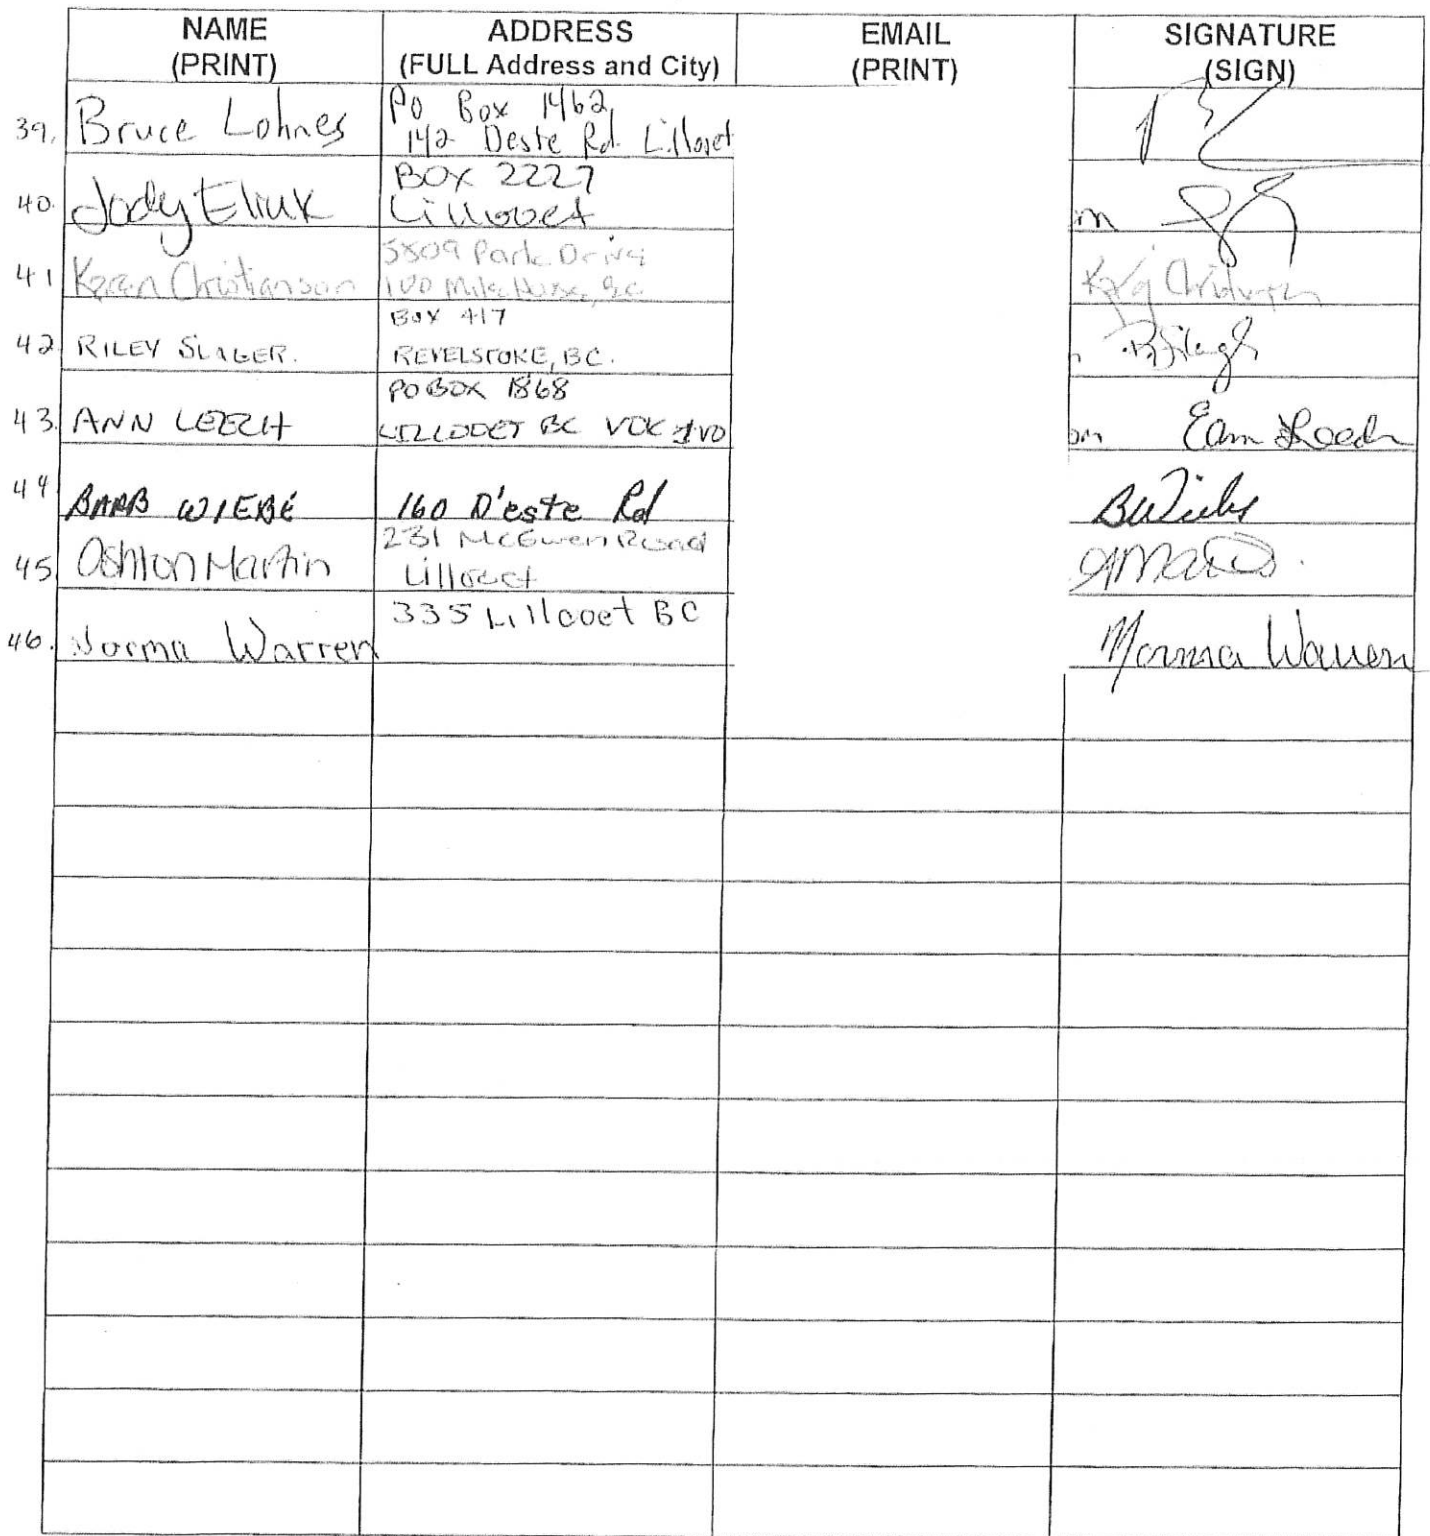 NAME
(PRINT)
ADDRESS
(FULL Address and City)
EMAIL
(PRINT)
SIGNATURE
(SIGN)
39. Bruce Lohnes
PO Box 1462,
142 Deste Rd. Lillooet
40. Jody Eliuk
BOX 2227
Lillooet
m
41 Karen Christianson
5809 Park Drive
100 Mile House, BC
42. RILEY SLAGER.
BOX 417
REVELSTOKE, BC.
43. ANN LEECH
PO BOX 1868
LILLOOET BC V0K 1V0
om Eam Leech
44 BARB WIEBE
160 D'este Rd
BWiebe
45. Ashton Martin
231 McEwen Road
Lillooet
46. Norma Warren
335 Lillooet BC
Norma Warren